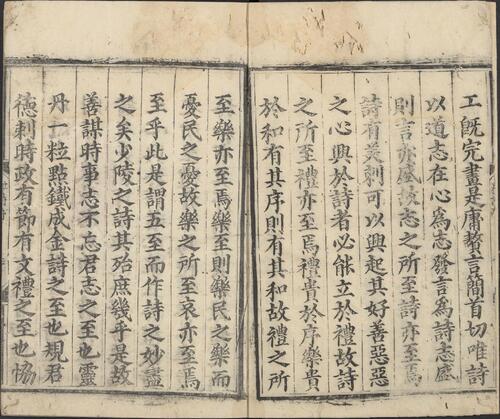 工既完畫是庸贅言簡首切唯詩
以道志在心爲志發言爲詩志盛
則言亦盛故志之所至詩亦至焉
詩有美刺可以興起其好善惡惡
之心興於詩者必能立於禮故詩
之所至禮亦至焉禮貴於序樂貴
於和有其序則有其和故禮之所
至樂亦至焉樂至則樂民之樂而
憂民之憂故樂之所至哀亦至焉
至乎此是謂五至而作詩之妙盡
之矣少陵之詩其殆庶幾乎是故
善謀時事志不忘君志之至也靈
丹一粒點鐵成金詩之至也規君
德刺時政有節有文禮之至也恊